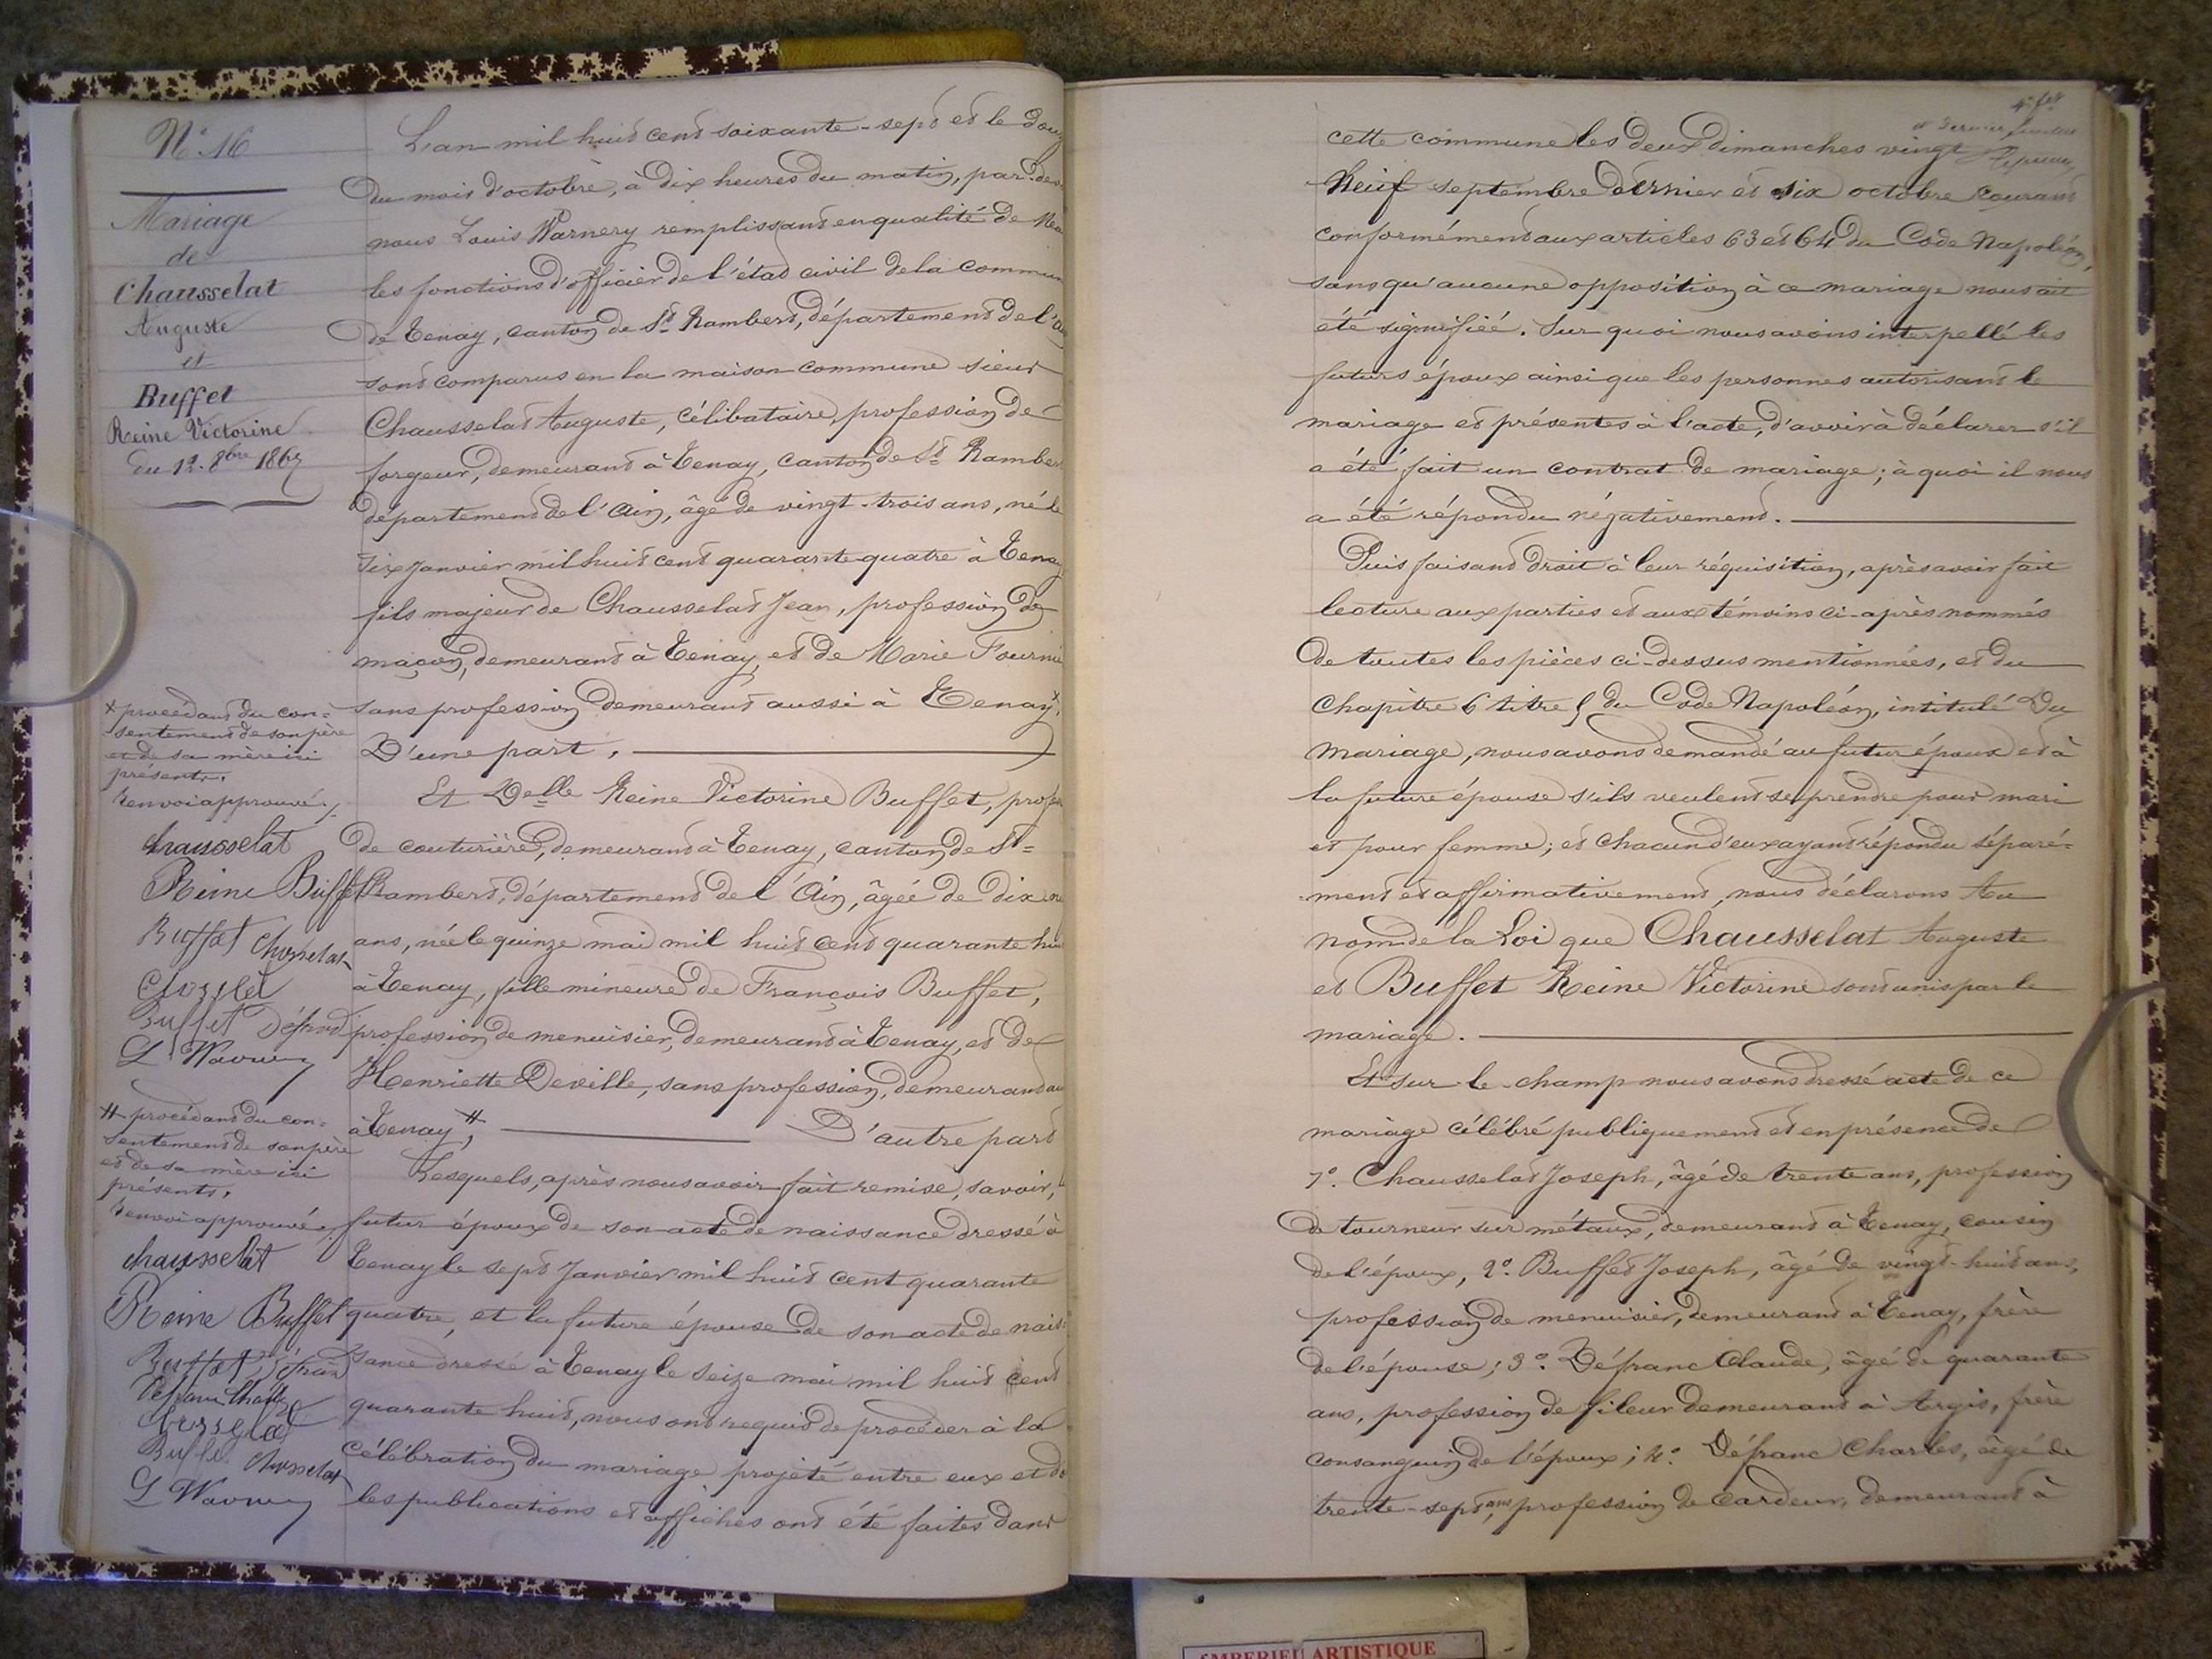 N° 16
Mariage
de
Chausselat
Auguste
et
Buffet
Reine Victorine
du 12. 8bre 1867
L'an mil huit cent soixante-sept et le douz
du mois d'octobre, à dix heures du matin, par-dev
nous Louis Warnery remplissant en qualité de Mai
les fonctions d'officier de l'état civil de la commun
de Tenay, canton de St Rambert, département de l'Ain
sont comparus en la maison commune sieur
Chausselat Auguste, célibataire, profession de
forgeur, demeurant à Tenay, canton de St Rambert
département de l'Ain, âgé de vingt-trois ans, né le
six janvier mil huit cent quarante-quatre à Tenay
fils majeur de Chausselat Jean, profession de
maçon, demeurant à Tenay, et de Marie Fournie
sans profession demeurant aussi à Tenay x,
D'une part,
x procédant du con-
sentement de son père
et de sa mère ici
présents.
Renvoi approuvé
Chausselat
Reine Buffet
Buffet Chosselat
Buffet Défranc
L Warnery
Et Delle Reine Victorine Buffet, profess
de couturière, demeurant à Tenay, canton de St-
Rambert, département de l'Ain, âgée de dix ne
ans, née le quinze mai mil huit cent quarante hui
à Tenay, fille mineure de François Buffet,
profession de menuisier, demeurant à Tenay, et de
Henriette Deville, sans profession, demeurant au
à Tenay, # D'autre part
# procédant du con-
sentement de son père
et de sa mère ici
présents.
Renvoi approuvé
chausselat
Reine Buffet
Buffet Défranc
Défranc Charles
Buffet Chosselat
L Warnery
Lesquels, après nous avoir fait remise, savoir, l
futur époux de son acte de naissance dressé à
Tenay le sept Janvier mil huit cent quarante
quatre, et la future épouse de son acte de nais-
sance dressé à Tenay le seize mai mil huit cent
quarante huit, nous ont requis de procéder à la
célébration du mariage projeté entre eux et do
les publications et affiches ont été faites dans
cette commune les deux dimanches vingt
Neuf septembre dernier et six octobre courant
conformément aux articles 63 et 64 du Code Napoléon,
sans qu'aucune opposition à ce mariage nous ait
été signifiée. Sur quoi nous avons interpellé les
futurs époux ainsi que les personnes autorisant le
mariage et présentes à l'acte, d'avoir à déclarer s'il
a été fait un contrat de mariage; à quoi il nous
a été répondu négativement.
Puis faisant droit à leur réquisition, après avoir fait
lecture aux parties et aux témoins ci-après nommés
de toutes les pièces ci-dessus mentionnées, et du
chapitre 6 titre 5 du Code Napoléon, intitulé Du
mariage, nous avons demandé au futur époux et à
la future épouse s'ils veulent se prendre pour mari
et pour femme; et chacun d'eux ayant répondu séparé-
ment et affirmativement, nous déclarons Au
nom de la Loi que Chausselat Auguste
et Buffet Reine Victorine sont unis par le
mariage.
Et sur-le-champ nous avons dressé acte de ce
mariage célébré publiquement et en présence de
1°. Chausselat Joseph, âgé de trente ans, profession
de tourneur sur métaux, demeurant à Tenay, cousin
de l'époux, 2°. Buffet Joseph, âgé de vingt-huit ans,
profession de menuisier, demeurant à Tenay, frère
de l'épouse; 3°. Défranc Claude, âgé de quarante
ans, profession de fileur demeurant à Argis, frère
consanguin de l'époux; 4°. Défranc Charles, âgé de
trente-sept ans, profession de cardeur, demeurant à
AMBERIEU ARTISTIQUE